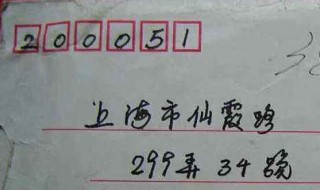 200051
上海市仙霞路
299弄34号